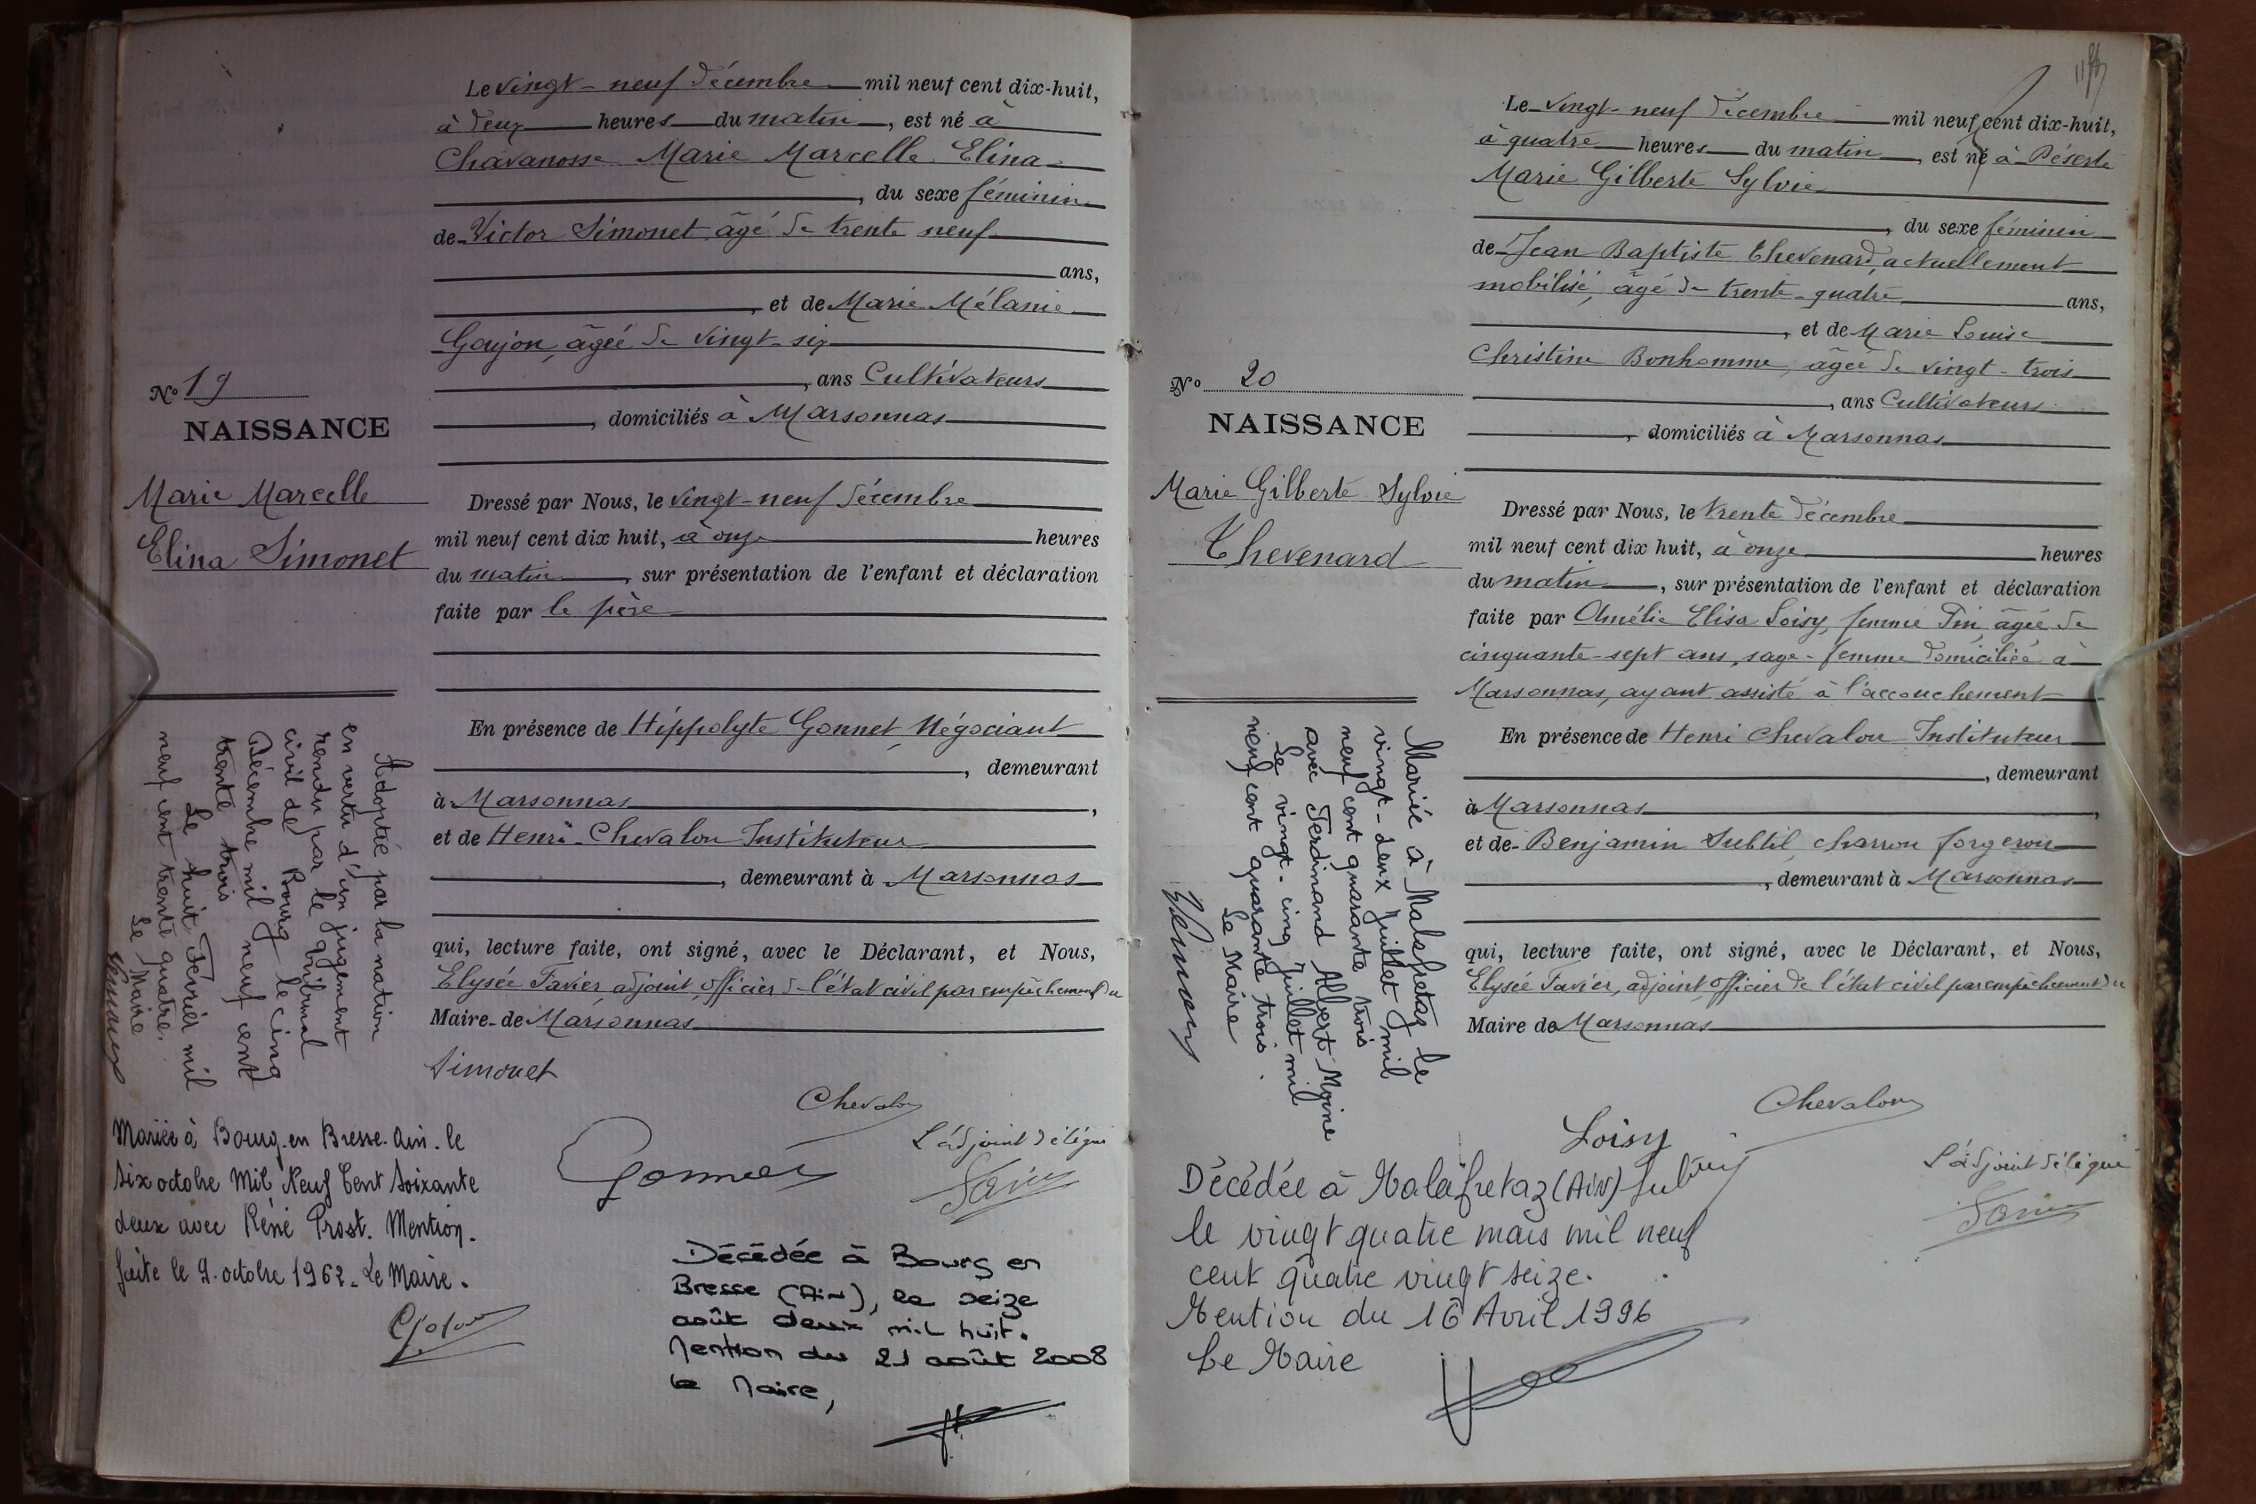 Le vingt-neuf décembre mil neuf cent dix-huit,
à deux heures du matin, est né à
Chavanosse Marie Marcelle Elina
, du sexe féminin
de Victor Simonet âgé de trente neuf
ans,
et de Marie Mélanie
Goujon, âgée de vingt-six
, ans Cultivateurs
, domiciliés à Marsonnas
Nº 19
NAISSANCE
Marie Marcelle
Elina Simonet
Dressé par Nous, le vingt-neuf décembre
mil neuf cent dix huit, à onze heures
du matin, sur présentation de l'enfant et déclaration
faite par le père
En présence de Hippolyte Gonnet, Négociant
, demeurant
à Marsonnas,
et de Henri Chevalon Instituteur
, demeurant à Marsonnas
qui, lecture faite, ont signé, avec le Déclarant, et Nous,
Elysée Favier, adjoint, officier de l'état civil par empêchement du
Maire de Marsonnas
Simonet
Chevalon
Gonnet
L'adjoint délégué
Favier
Adoptée par la nation
en vertu d'un jugement
rendu par le tribunal
civil de Bourg le cinq
Décembre mil neuf cent
trente trois
Le huit Février mil
neuf cent trente quatre.
Le Maire
Mariée à Bourg-en Bresse-Ain-le
six octobre Mil Neuf Cent Soixante
deux avec René Prost. Mention.
faite le 9 octobre 1962_Le Maire.
Décédée à Bourg en
Bresse (Ain), le seize
août deux mil huit.
Mention du 21 août 2008
Le Maire,
Le vingt-neuf décembre mil neuf cent dix-huit,
à quatre heures du matin, est né à Déserte
Marie Gilberte Sylvie
, du sexe féminin
de Jean Baptiste Chevenard, actuellement
mobilisé, âgé de trente-quatre ans,
, et de Marie Louise
Christine Bonhomme, âgée de vingt-trois
, ans Cultivateurs
, domiciliés à Marsonnas
Nº 20
NAISSANCE
Marie Gilberte Sylvie
Chevenard
Dressé par Nous, le trente décembre
mil neuf cent dix huit, à onze heures
du matin, sur présentation de l'enfant et déclaration
faite par Amélie Elisa Loisy, femme Pin, âgée de
cinquante-sept ans, sage-femme domiciliée à
Marsonnas, ayant assisté à l'accouchement
En présence de Henri Chevalon Instituteur
, demeurant
à Marsonnas,
et de Benjamin Subtil, charron forgeron
, demeurant à Marsonnas
qui, lecture faite, ont signé, avec le Déclarant, et Nous,
Elysée Favier, adjoint, officier de l'état civil par empêchement du
Maire de Marsonnas
Chevalon
Loisy
Subtil
L'adjoint délégué
Favier
Mariée à Malafretaz le
vingt-deux Juillet mil
neuf cent quarante trois
avec Ferdinand Albert Moine
Le vingt-cinq Juillet mil
neuf cent quarante trois.
Le Maire
Décédée à Malafretaz (Ain)
le vingt quatre mars mil neuf
cent quatre vingt seize.
Mention du 16 Avril 1996
Le Maire